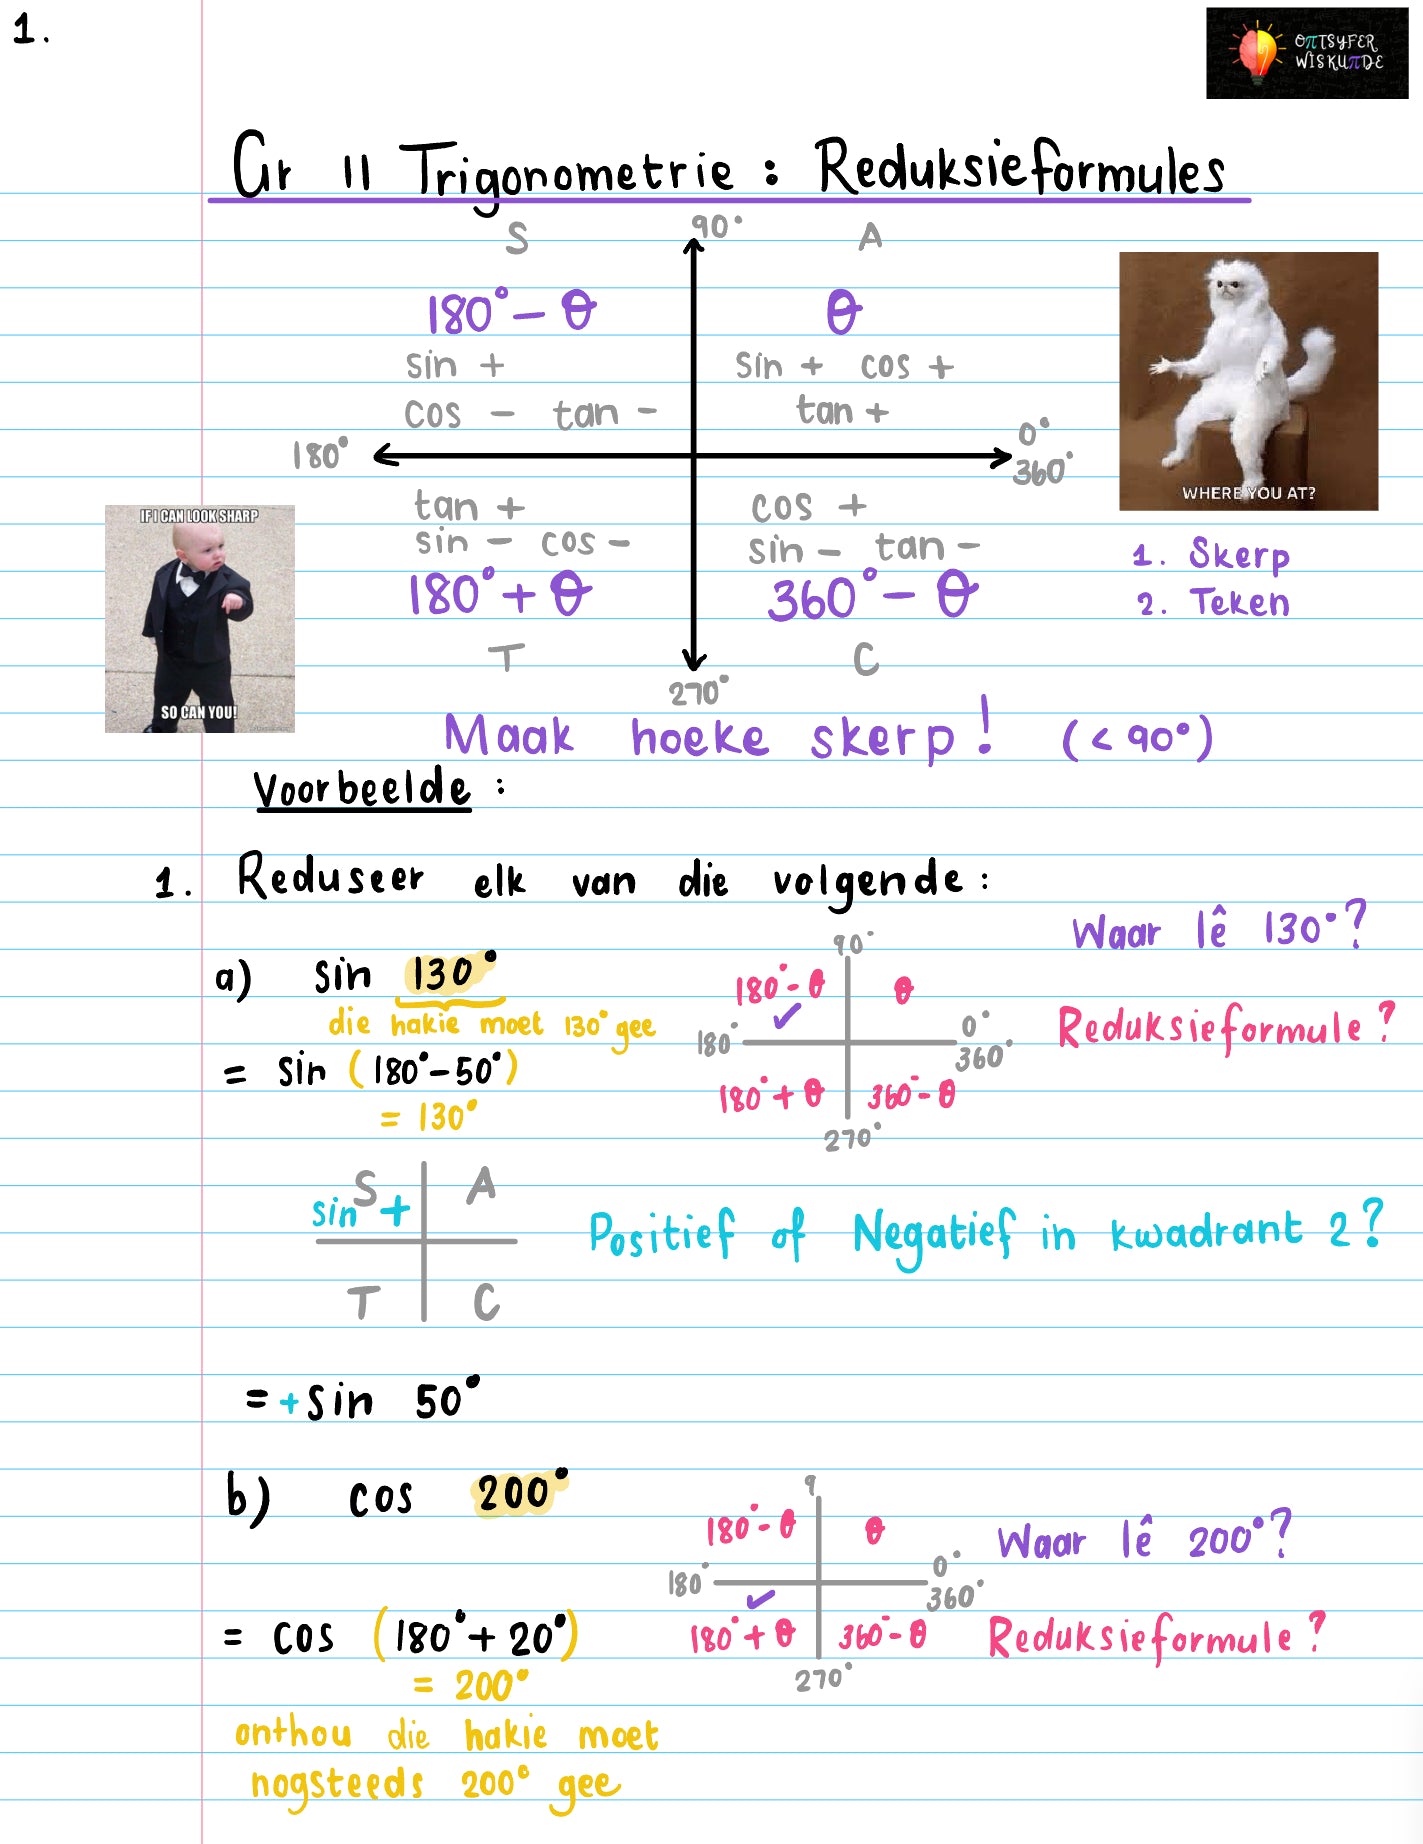 1.
OπTSYFER
WISKUπDE
Gr 11 Trigonometrie : Reduksieformules
S 90° A
180° - θ θ
sin + sin + cos +
cos - tan - tan +
180° 0°
360°
tan + cos +
sin - cos - sin - tan -
180° + θ 360° - θ
T C
270°
WHERE YOU AT?
1. Skerp
2. Teken
IF I CAN LOOK SHARP
SO CAN YOU!
Maak hoeke skerp! (< 90°)
Voorbeelde :
1. Reduseer elk van die volgende :
Waar lê 130°?
a) sin 130°
die hakie moet 130° gee
= sin (180° - 50°)
= 130°
90°
180° - θ θ
✓
180° 0°
360°
180° + θ 360° - θ
270°
Reduksieformule?
S A
sin +
T C
Positief of Negatief in kwadrant 2?
= + sin 50°
b) cos 200°
= cos (180° + 20°)
= 200°
onthou die hakie moet
nogsteeds 200° gee
9
180° - θ θ
180° 0°
360°
✓
180° + θ 360° - θ
270°
Waar lê 200°?
Reduksieformule?